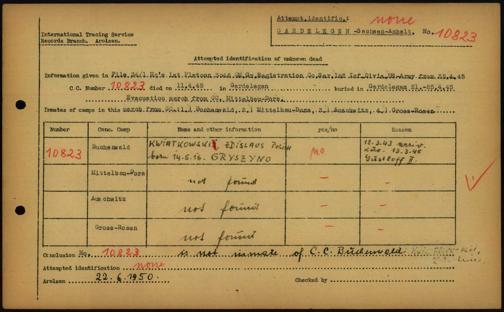 Attempt.identific.: none
GARDELEGEN -Sachsen-Anhalt. No. 10823
International Tracing Service
Records Branch. Arolsen.
Attempted identification of unknown dead
Information given in File 24/1 Hq's 1st Platoon 3045 QM.Gr.Registration Co.Ser.1nd Inf.Divis.US-Army from 25.4.45
C.C. Number 10823 died in 13.4.45 in Gardelegen buried in Gardelegen 21.-25.4.45
Evacuation march from CC. Mittelbau-Dora.
Inmates of camps in this march from CC.(1.) Buchenwald, 2.) Mittelbau-Dora, 3.) Auschwitz, 4.) Gross-Rosen
Number Conc.Camp Name and other information yes/no Reason
10823 Buchenwald KWIATKOWSKI ZDISLAUS Polish no 12.3.43
born 14.5.16. GRYSZYNO 13.3.45
Gustloff II.
Mittelbau-Dora not found —
Auschwitz not found —
Gross-Rosen not found —
Conclusion No. 10823 is not inmate of C.C. Buchenwald
Attempted identification none
Arolsen 22.6.1950 Checked by